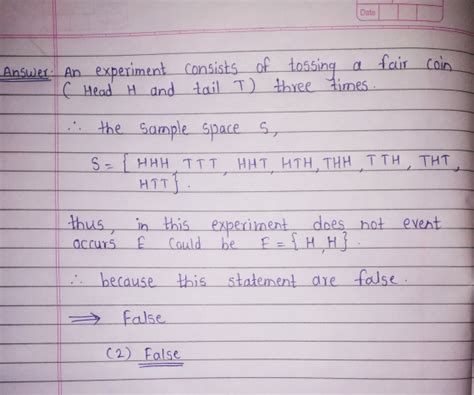 Date
Answer: An experiment consists of tossing a fair coin
( Head H and tail T) three times.
∴ the sample space S,
S = { HHH, TTT, HHT, HTH, THH, TTH, THT,
HTT}.
thus, in this experiment does not event
occurs E could be E = {H, H}.
∴ because this statement are false.
⇒ False
(2) False